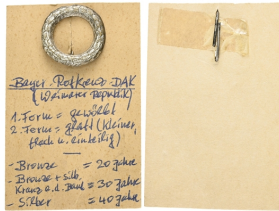 Bayer. Rotkreuz DAK
(Weimarer Republik)
1. Form = gewölbt
2. Form = glatt (kleiner,
flach u. einteilig)
- Bronze = 20 Jahre
- Bronze + silb.
Kranz a. d. Band = 30 Jahre
- Silber = 40 Jahre